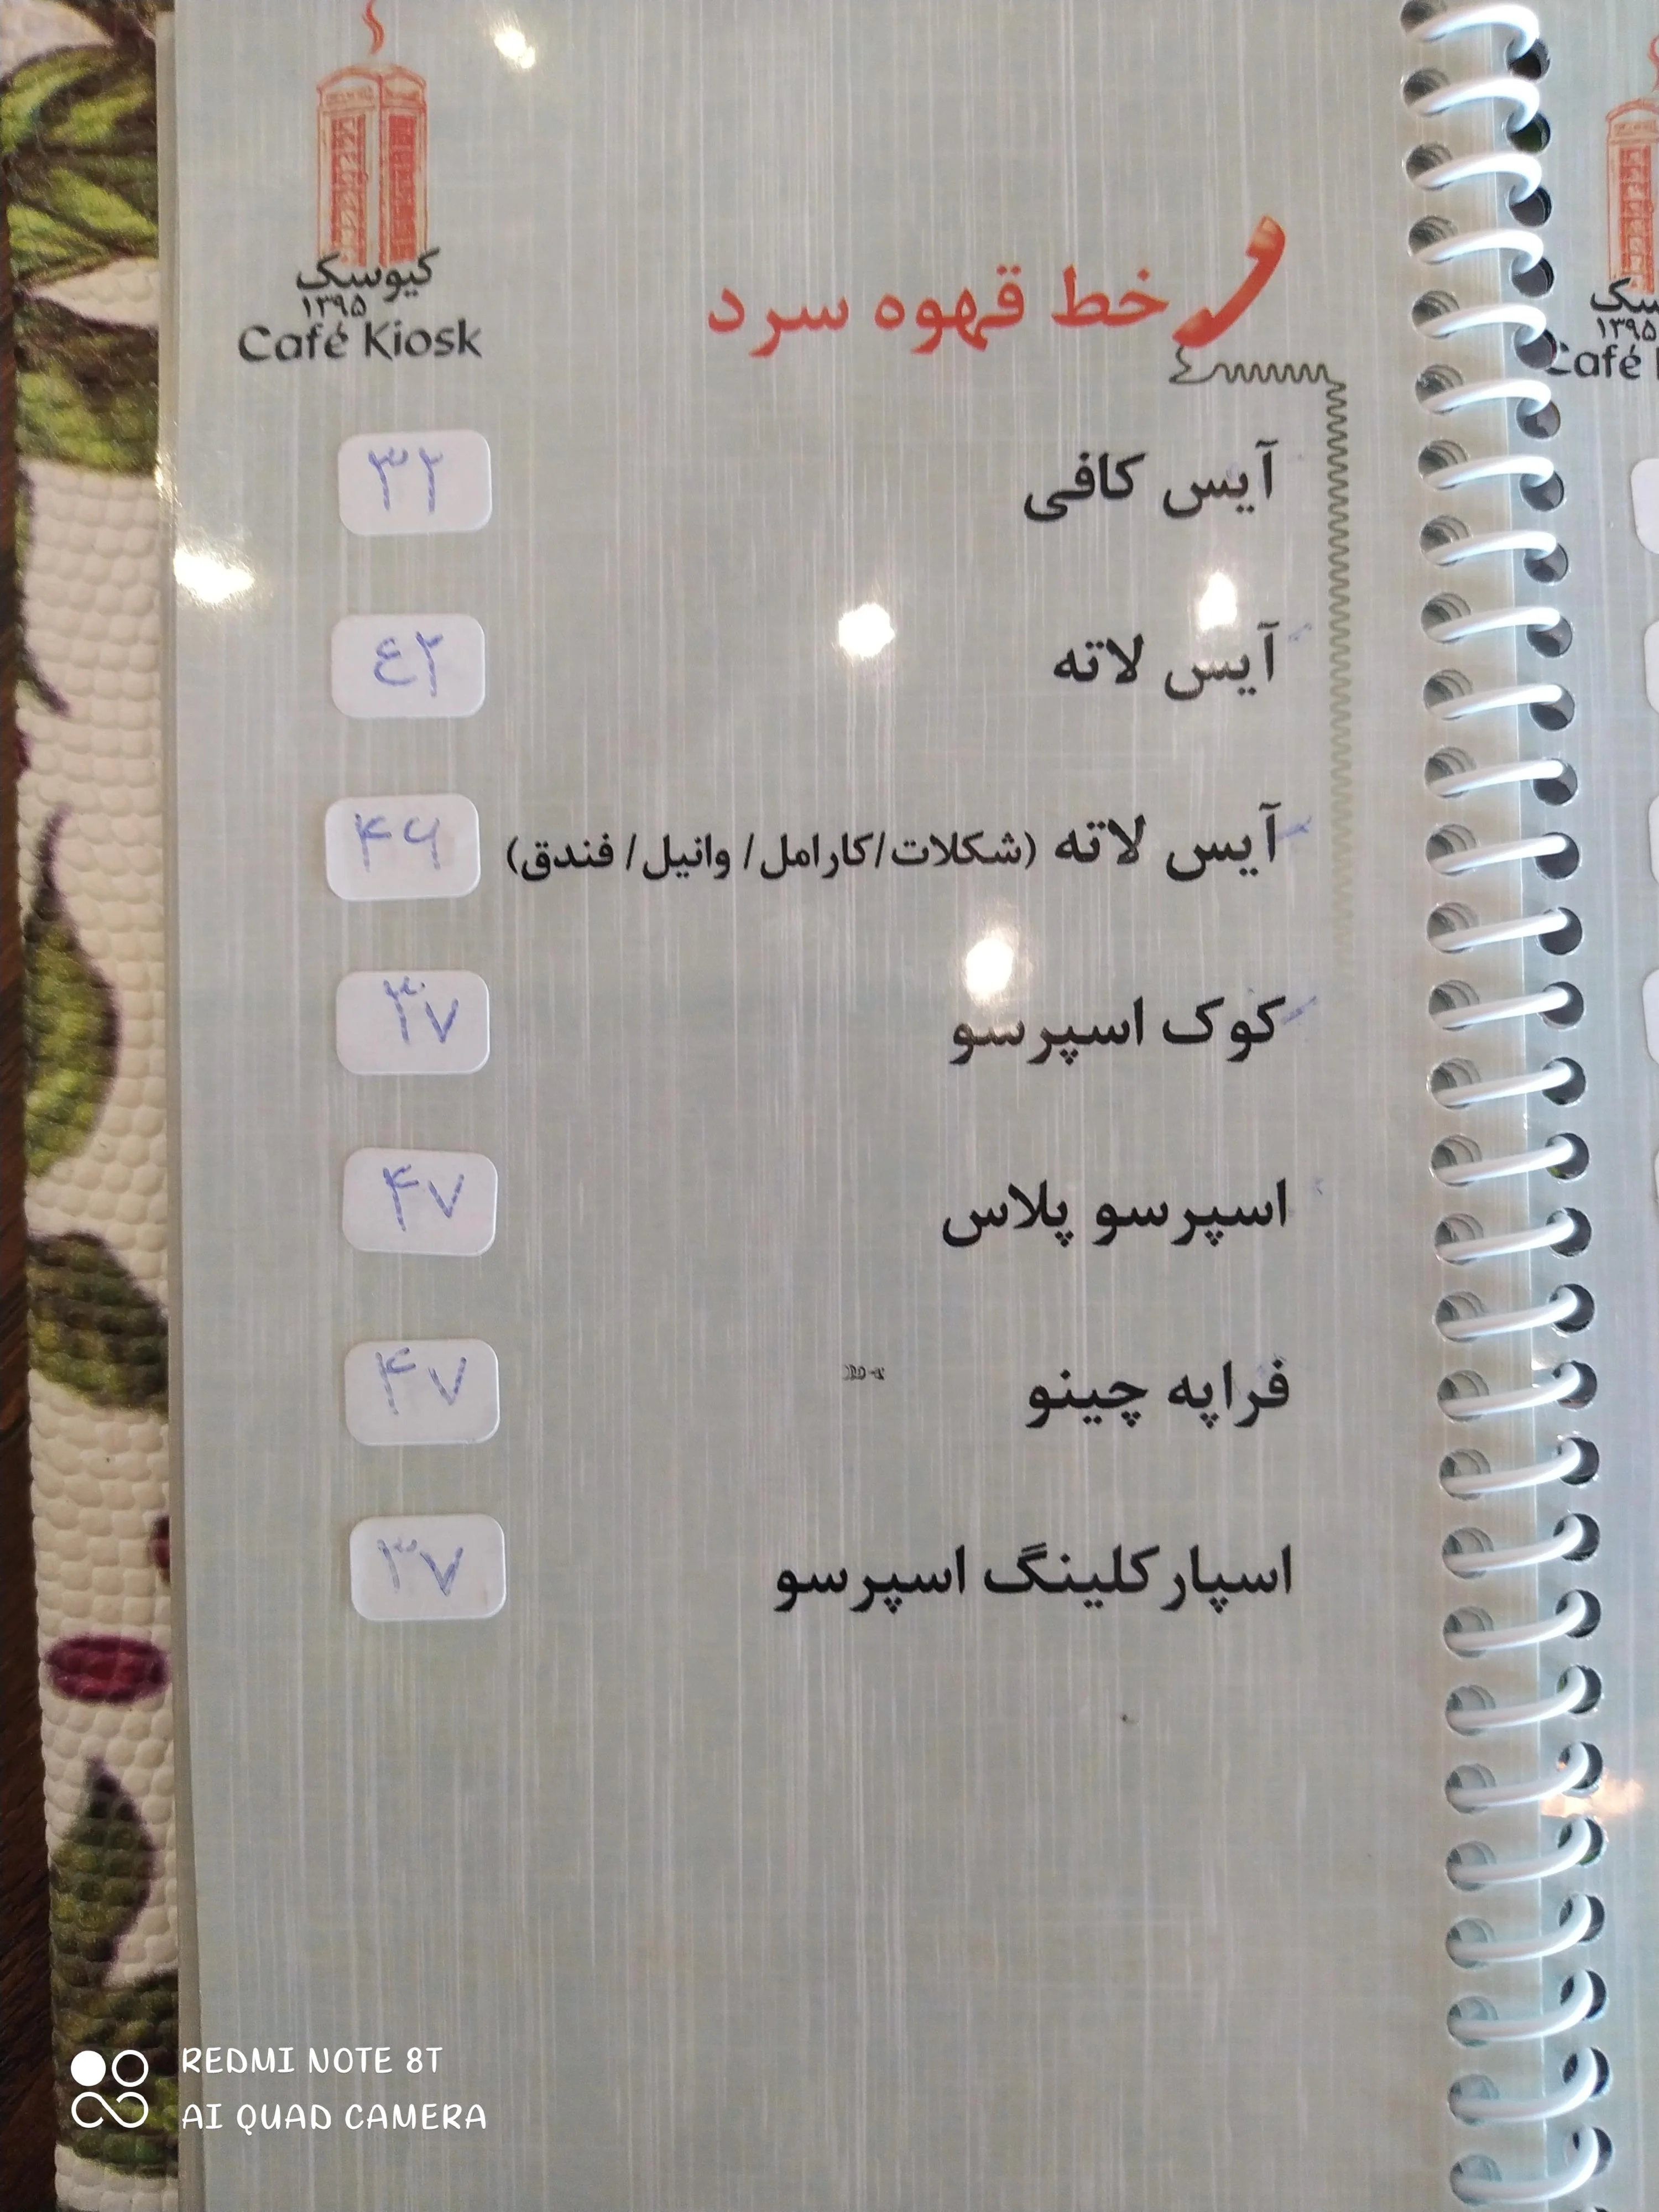 کیوسک
۱۳۹۵
Café Kiosk
خط قهوه سرد
آیس کافی ۳۲
آیس لاته ٤۲
آیس لاته (شکلات/کارامل/ وانیل/ فندق) ۴۶
کوک اسپرسو ۳۷
اسپرسو پلاس ۴۷
فراپه چینو ۴۷
اسپارکلینگ اسپرسو ۳۷
۱۳۹۵
REDMI NOTE 8T
AI QUAD CAMERA